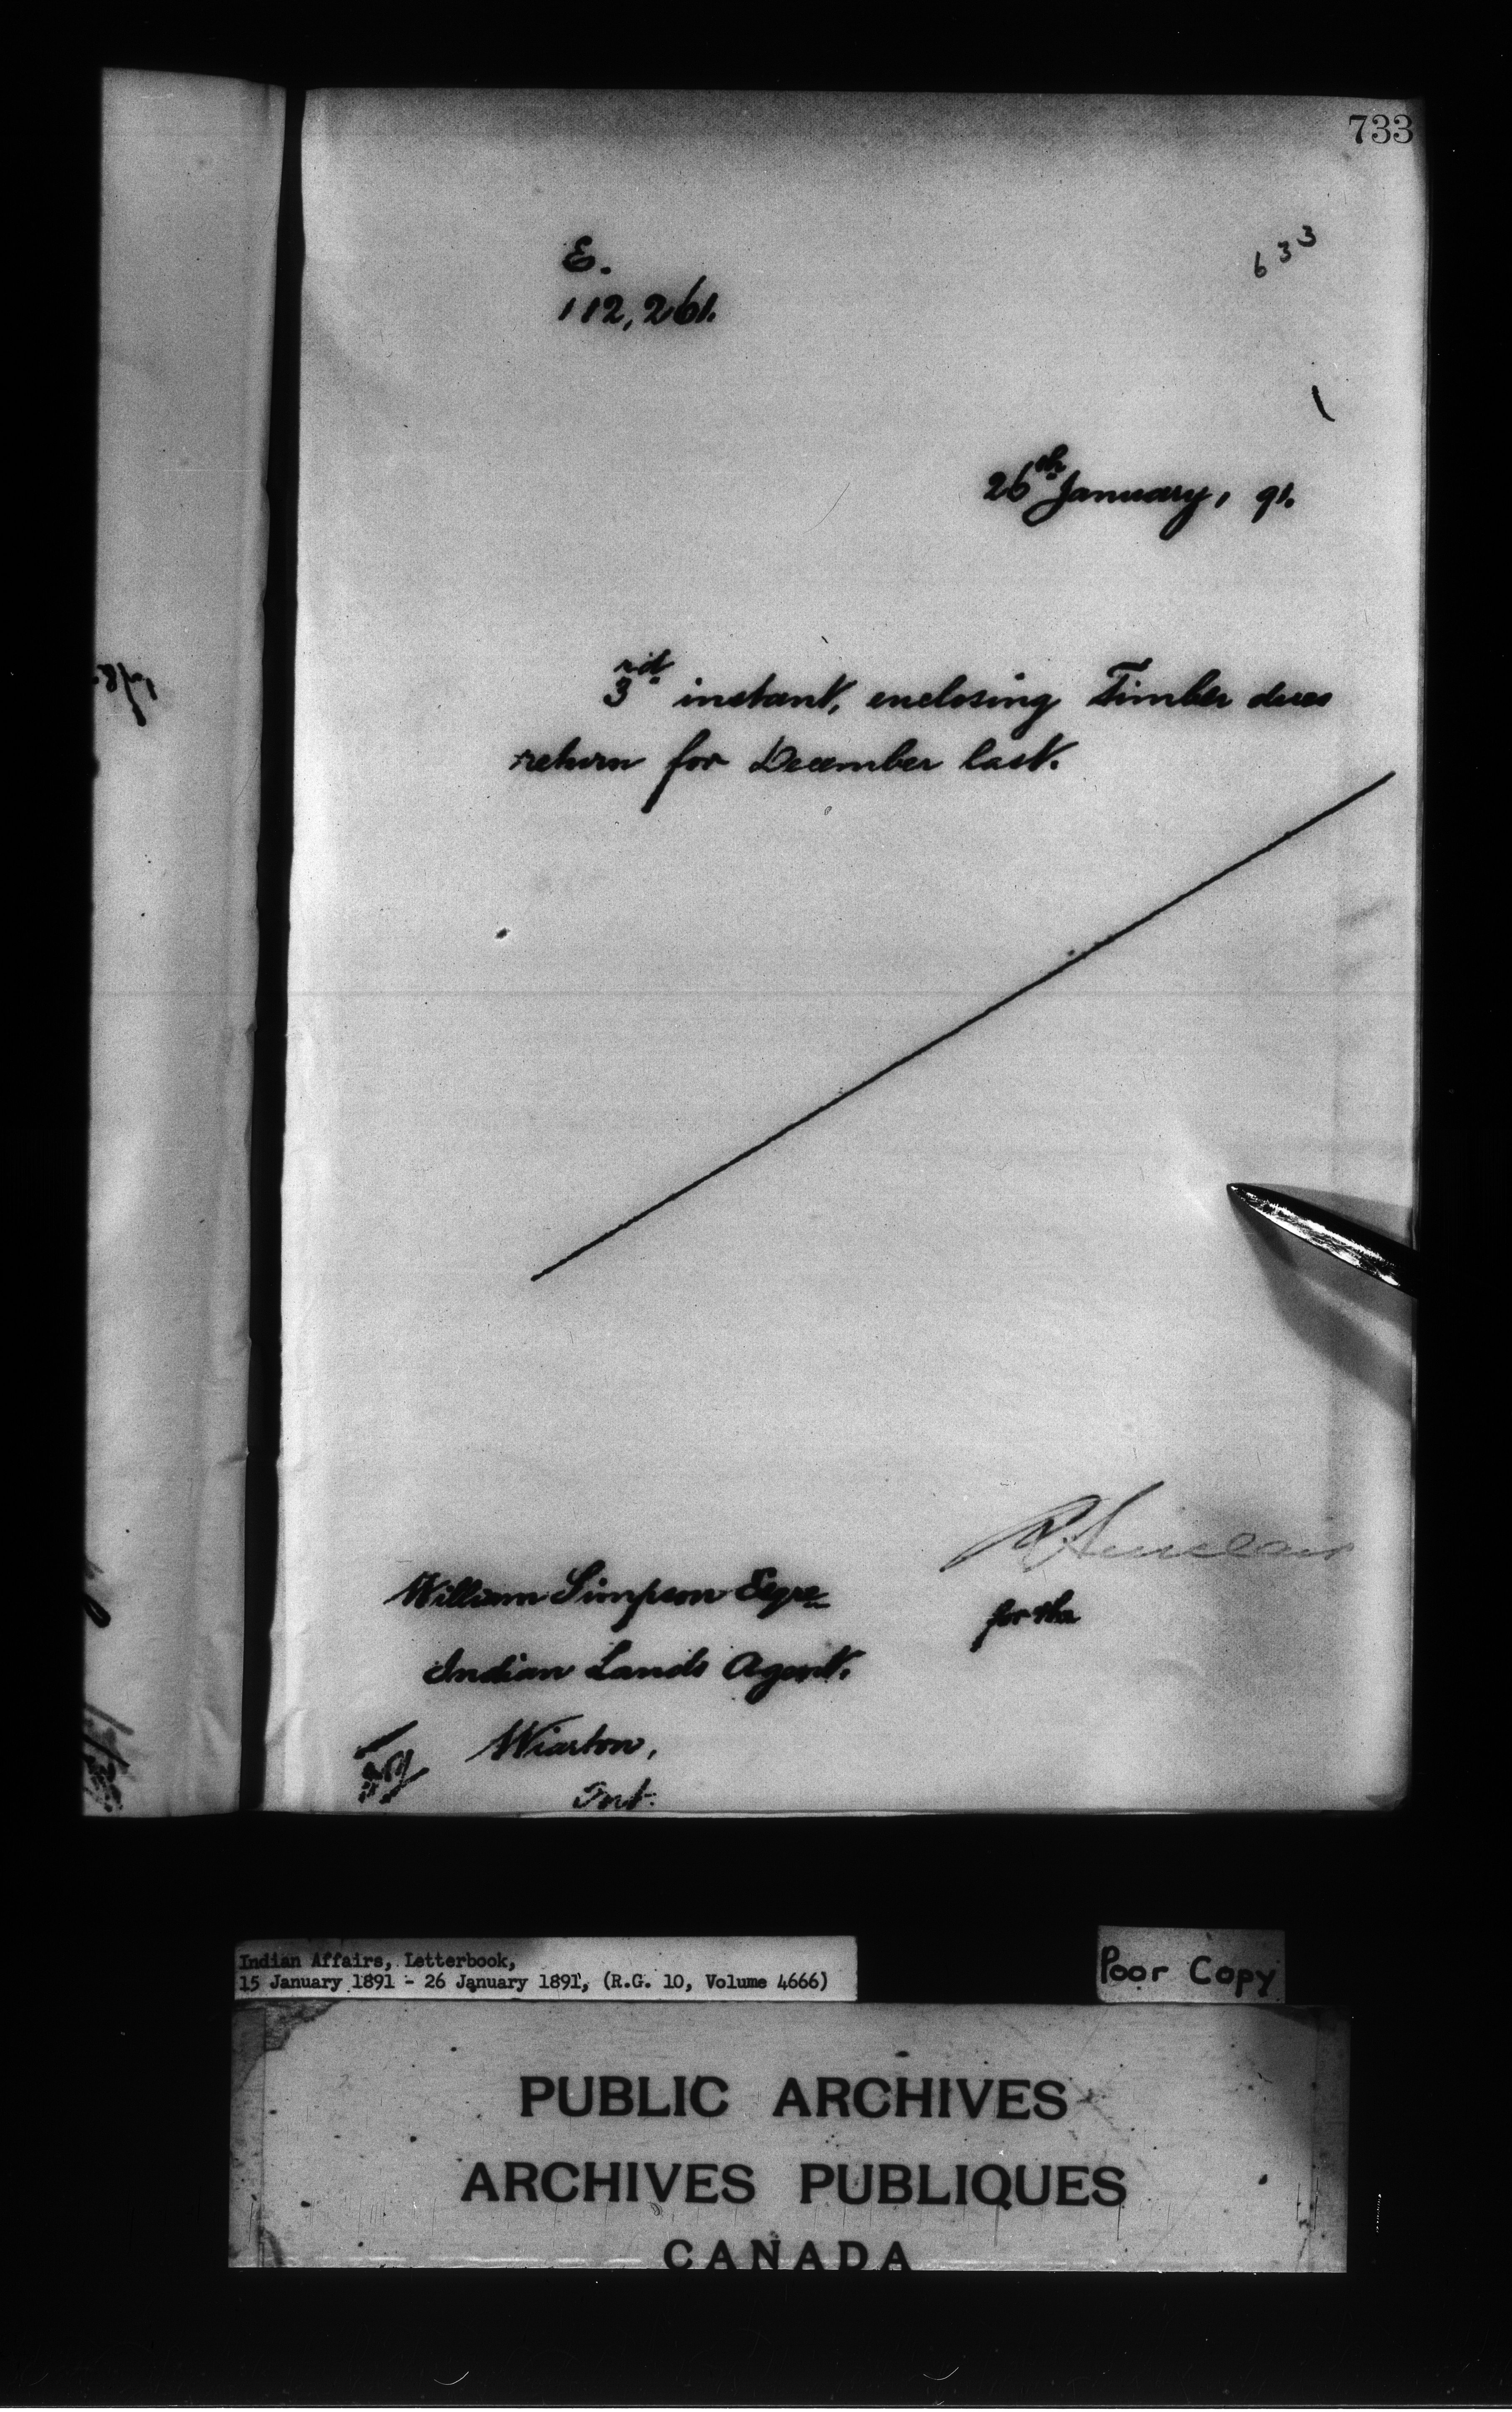 733
633
E.
112,261.
26th January, 91.
3rd instant, enclosing Timber dues
return for December last.
R Sinclair
for the
William Simpson Esqre
Indian Lands Agent.
Wiarton,
Ont.
Indian Affairs, Letterbook,
15 January 1891 - 26 January 1891, (R.G. 10, Volume 4666)
Poor Copy
PUBLIC ARCHIVES
ARCHIVES PUBLIQUES
CANADA